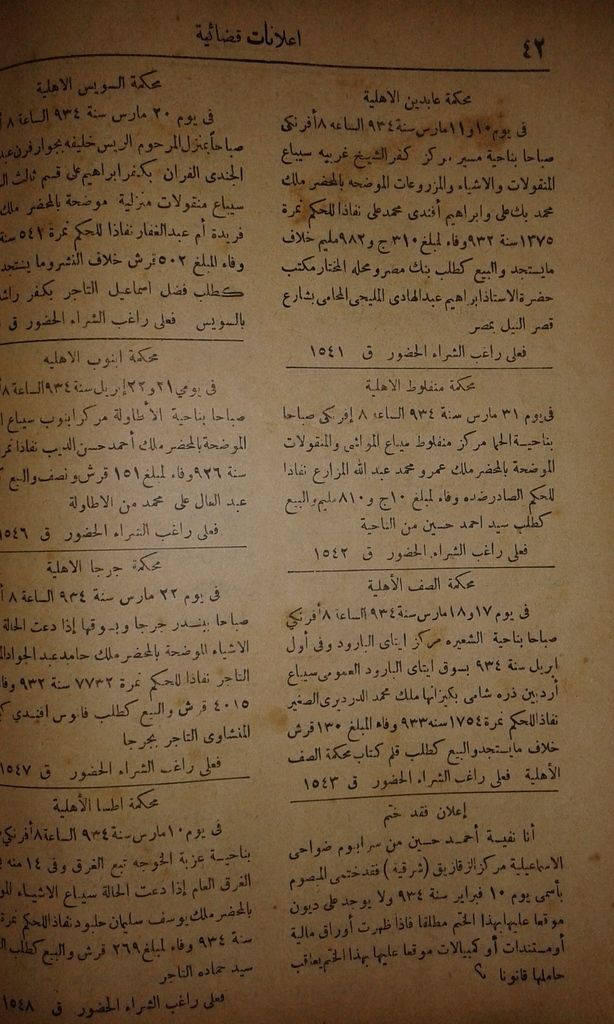 ٤٢
اعلانات قضائية
محكمة عابدين الاهلية
فى يوم ١٠ و١١ مارس سنة ٩٣٤ الساعه ٨ أفرنكى
صباحا بناحية مسير مركز كفر الشيخ غربيه سيباع
المنقولات والاشياء والمزروعات الموضحه بالمحضر ملك
محمد بك على وابراهيم أفندى محمد على نفاذا للحكم نمرة
١٣٧٥ سنة ٩٣٢ وفاء لمبلغ ٣١٠ ج و٩٨٢ مليم خلاف
مايستجد والبيع كطلب بنك مصر ومحله المختار مكتب
حضرة الاستاذ ابراهيم عبد الهادى المليجى المحامى بشارع
قصر النيل بمصر
فعلى راغب الشراء الحضور ق ١٥٤١
محكمة منفلوط الاهلية
فى يوم ٣١ مارس سنة ٩٣٤ الساعه ٨ إفرنكى صباحا
بناحية الحما مركز منفلوط سيباع المواشى والمنقولات
الموضحة بالمحضر ملك عمرو محمد عبد الله المزارع نفاذا
للحكم الصادر ضده وفاء لمبلغ ١٠ ج و٨١٠ مليم والبيع
كطلب سيد احمد حسين من الناحية
فعلى راغب الشراء الحضور ق ١٥٤٢
محكمة الصف الأهلية
فى يوم ١٧ و١٨ مارس سنة ٩٣٤ الساعة ٨ أفرنكي
صباحا بناحية الشعيره مركز ايتاى البارود وفى أول
ابريل سنة ٩٣٤ بسوق ايتاى البارود العمومى سيباع
أردبين ذره شامى بكيزانها ملك محمد الدرديرى الصغير
نفاذا للحكم نمرة ١٧٥٤ سنه ٩٣٣ وفاء المبلغ ١٣٠ قرش
خلاف مايستجد والبيع كطلب قلم كتاب محكمة الصف
الأهلية فعلى راغب الشراء الحضور ق ١٥٤٣
إعلان فقد ختم
أنا نفيسة أحمد حسين من سرابيوم ضواحى
الاسماعيلية مركز الزقازيق (شرقية) فقد ختمى المبصوم
بأسمى يوم ١٠ فبراير سنة ٩٣٤ ولا يوجد على ديون
موقعا عليها بهذا الختم مطلقا فاذا ظهرت أوراق مالية
أو مستندات أو كمبيالات موقعا عليها بهذا الختم يعاقب
حاملها قانونا
محكمة السويس الاهلية
فى يوم ٢٠ مارس سنة ٩٣٤ الساعة ٨
صباحا بمنزل المرحوم الريس خليفه بجوار فرن
الجندى الفران بكفر ابراهيم على قسم ثالث
سيباع منقولات منزلية موضحة بالمحضر ملك
فريدة أم عبد الغفار نفاذا للحكم نمرة ٥٤٧ سنة
وفاء المبلغ ٥٠٢ قرش خلاف النشر وما يستجد
كطلب فضل اسماعيل التاجر بكفر
بالسويس فعلى راغب الشراء الحضور ق
محكمة ابنوب الاهليه
فى يومي ٢١ و٢٢ إبريل سنة ٩٣٤ الساعة ٨
صباحا بناحية الأطاولة مركز ابنوب سيباع
الموضحة بالمحضر ملك أحمد حسن الديب نفاذا
سنة ٩٢٦ وفاء لمبلغ ١٥١ قرش ونصف والبيع
عبد العال على محمد من الاطاولة
فعلى راغب الشراء الحضور ق ١٥٤٦
محكمة جرجا الاهلية
فى يوم ٢٢ مارس سنة ٩٣٤ الساعة ٨
صباحا ببندر جرجا وبسوقها إذا دعت الحالة
الاشياء الموضحة بالمحضر ملك حامد عبد الجواد
التاجر نفاذا للحكم نمرة ٧٧٣٢ سنة ٩٣٢
٤٠١٥ قرش والبيع كطلب فانوس افندى
المنشاوى التاجر بجرجا
فعلى راغب الشراء الحضور ق ١٥٤٧
محكمة اطسا الأهلية
فى يوم ١٠ مارس سنة ٩٣٤ الساعة ٨ أفرنكي
بناحية عزبة الخوجه تبع الغرق وفى ١٤ منه
الغرق العام إذا دعت الحالة سيباع الاشياء
بالمحضر ملك يوسف سليمان حلبود نفاذا للحكم نمرة
سنة ٩٣٤ وفاء لمبلغ ٢٦٩ قرش والبيع كطلب
سيد حماده التاجر
فعلى راغب الشراء الحضور ق ١٥٤٨